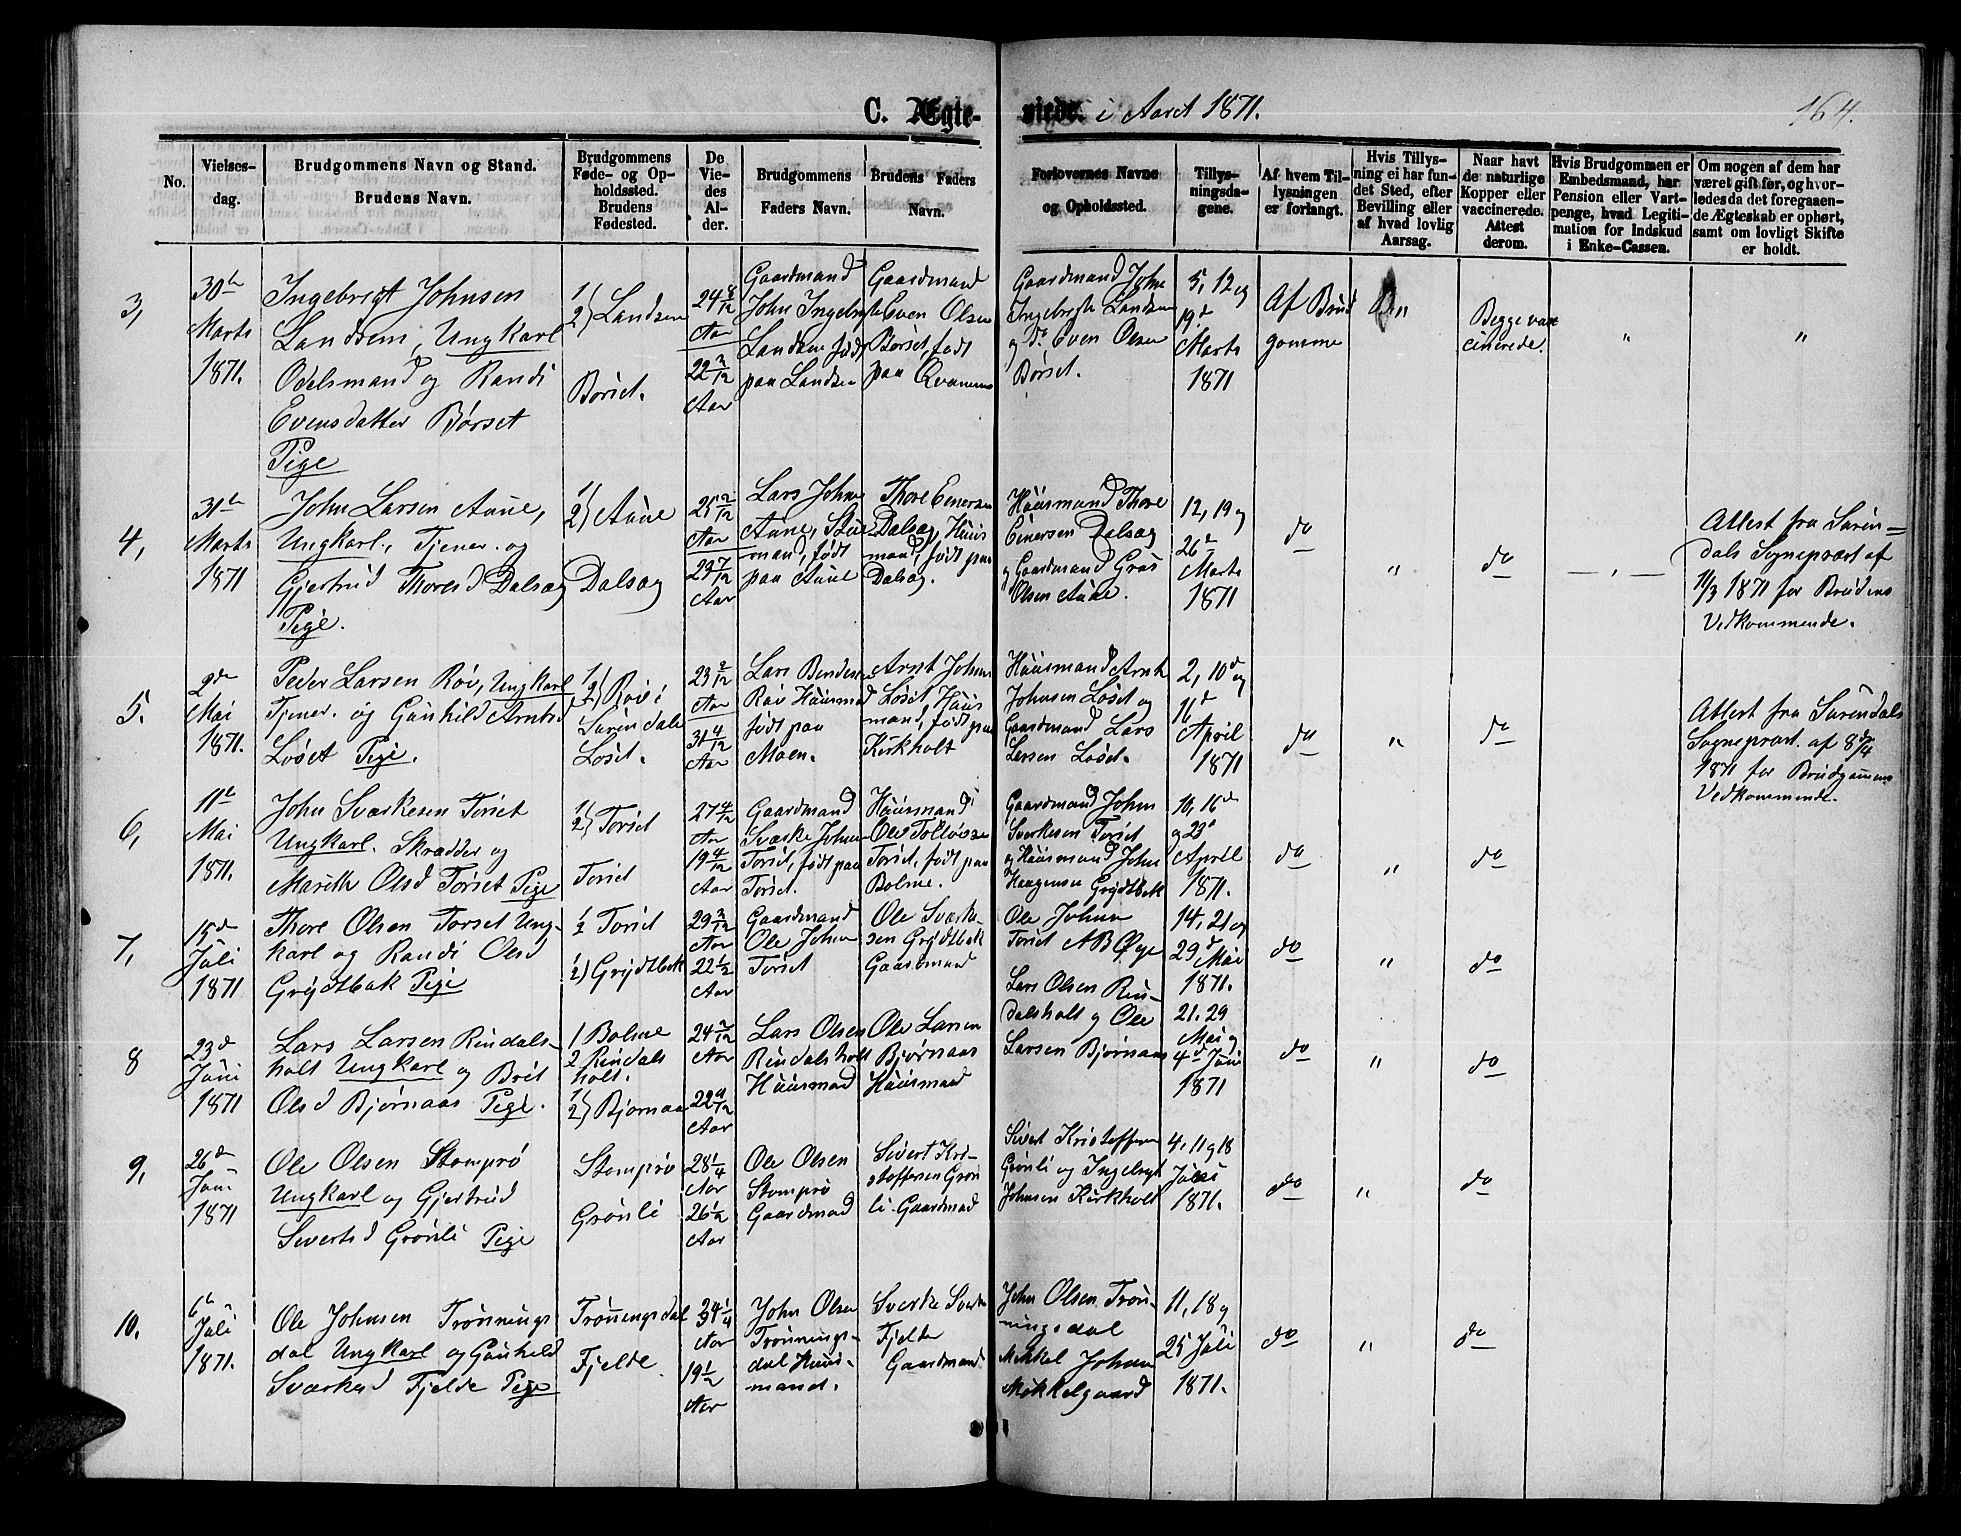 C. Ægteviede. i Aaret 1871.
164.
No.
Vielses-
dag.
Brudgommens Navn og Stand.
Brudens Navn.
Brudgommens
Føde- og Op-
holdssted.
Brudens
Fødested.
De
Vie-
des
Al-
der.
Brudgommens
Faders Navn.
Brudens Faders
Navn.
Forlovernes Navne
og Opholdssted.
Tillys-
ningsda-
gene.
Af hvem Til-
lysningen
er forlangt.
Hvis Tillys-
ning ei har fun-
det Sted, efter
Bevilling eller
af hvad lovlig
Aarsag.
Naar havt
de naturlige
Kopper eller
vaccinerede.
Attest
derom.
Hvis Brudgommen er
Embedsmand, har
Pension eller Vart-
penge, hvad Legiti-
mation for Indskud
i Enke-Cassen.
Om nogen af dem har
været gift før, og hvor-
ledes da det foregaaen-
de Ægteskab er ophørt,
samt om lovligt Skifte
er holdt.
3,
30te
Marts
1871.
Ingebrigt Johnsen
Landsem, Ungkarl
Odelsmand og Randi
Evensdatter Børset
Pige
1)
2) Landsem
Børset.
24 8/12
Aar
22 3/12
Aar
Gaardmand
John Ingebr
Landsem født
paa Landsem
Gaardmand
Even Olsen
Børset, født
paa Kvammen
Gaardmand John
Ingebrigts Landsem
og Do Even Olsen
Børset.
5, 12 og
19d
Marts
1871
Af Brud
gomme
"
Begge vac
cinerede.
"
"
4,
31te
Marts
1871
John Larsen Aune,
Ungkarl, Tjener. og
Gjertrud Thoresd Dalsæg
Pige.
1)
2) Aune
Dalsæg
25 2/12
Aar
29 7/12
Aar
Lars Johns
Aune, Hus
mand, født
paa Aune
Thore Einersen
Dalsæg, Huus
mand, født paa
Dalsæg.
Huusmand Thore
Einersen Dalsæg
og Gaardmand Gras
Olsen Aune.
12, 19 og
26d
Marts
1871
do
"
do
— " —
Attest fra Suren-
dals Sognepræst af
11/3 1871 for Brudens
Vedkommende.
5.
2den
Mai
1871.
Peder Larsen Røv, Ungkarl
Tjener. og Gunhild Arntsd
Løset Pige.
1)
2) Røv i
Surendal
Løset.
23 2/12
Aar
31 4/12
Aar
Lars Bendsen
Røv Huusmand
født paa
Moen.
Arnt Johns
Løset, Huus
mand, født paa
Kirkholt
Huusmand Arnt
Johnsen Løset og
Gaardmand Lars
Larsen Løset.
2, 10d og
16d
April
1871
do
"
do
Attest fra Surendals
Sognepræst. af 8d/4
1871 for Brudgommens
Vedkommende.
6,
11te
Mai
1871.
John Sværkesen Torset
Ungkarl. Skrædder og
Marith Olsd Torset Pige
1)
2) Torset
Torset
27 4/12
Aar
19 4/12
Aar
Gaardmand
Sværke Johns
Torset, født paa
Torset.
Huusmand
Ole Tolløvsen
Torset, født paa
Bolme.
Gaardmand John
Sværkesen Torset
og Huusmand John
Haagensen Grydtbæk
10, 16d
og 23d
April
1871.
do
"
do
7,
15d
Juli
1871
Thore Olsen Torset Ung-
karl og Randi Olsd
Grydtbæk Pige
1/2 Torset
1/2) Grydtbæk
29 3/12
Aar
22 1/2
Aar
Gaardmand
Ole Johns
Torset
Ole Sværke-
sen Grydtbæk
Gaardmand
Ole Johnsen
Torset AB Øye
14, 21 og
29d Mai
1871.
do
"
do
8
23d
Juni
1871
Lars Larsen Rindals-
holt Ungkarl og Brit
Olsd Bjørnaas Pige.
1 Bolme
2 Rindals
holt.
1/2) Bjørnaas
24 2/12
Aar
22 9/12
Aar
Lars Olsen
Rindalsholt
Huusmand
Ole Larsen
Bjørnaas
Huusmand
Lars Olsen Rin-
dalsholt og Ole
Larsen Bjørnaas
21. 29
Mai og
4d Juni
1871
do
"
do
9,
26d
Juni
1871
Ole Olsen Stomprø
Ungkarl og Gjertrud
Sivertsd Grønli Pige
Stomprø
Grønli
28 1/4
Aar
26 1/2
Aar
Ole Olsen
Stomprø
Gaardmand
Sivert Kri-
stoffersen Grøn
li. Gaardmand
Sivert Kristoffersen
Grønli og Ingebrigt
Johnsen Kirkholt
4, 11 og 18
Juni
1871.
do
"
do
10.
6te
Juli
1871.
Ole Johnsen Trønnings
dal Ungkarl og Gunhild
Sværkesd Fjelde Pige
Trønningsdal
Fjelde.
24 1/4
Aar
19 1/2
Aar
John Olsen
Trønnings-
dal Huus-
mand.
Sverke Sverkes
Fjelde
Gaardmand
John Olsen Trøn-
ningsdal
Mikkel Johnsen
Mikkelgaard
11, 18 og
25 Juli
1871.
do
"
do